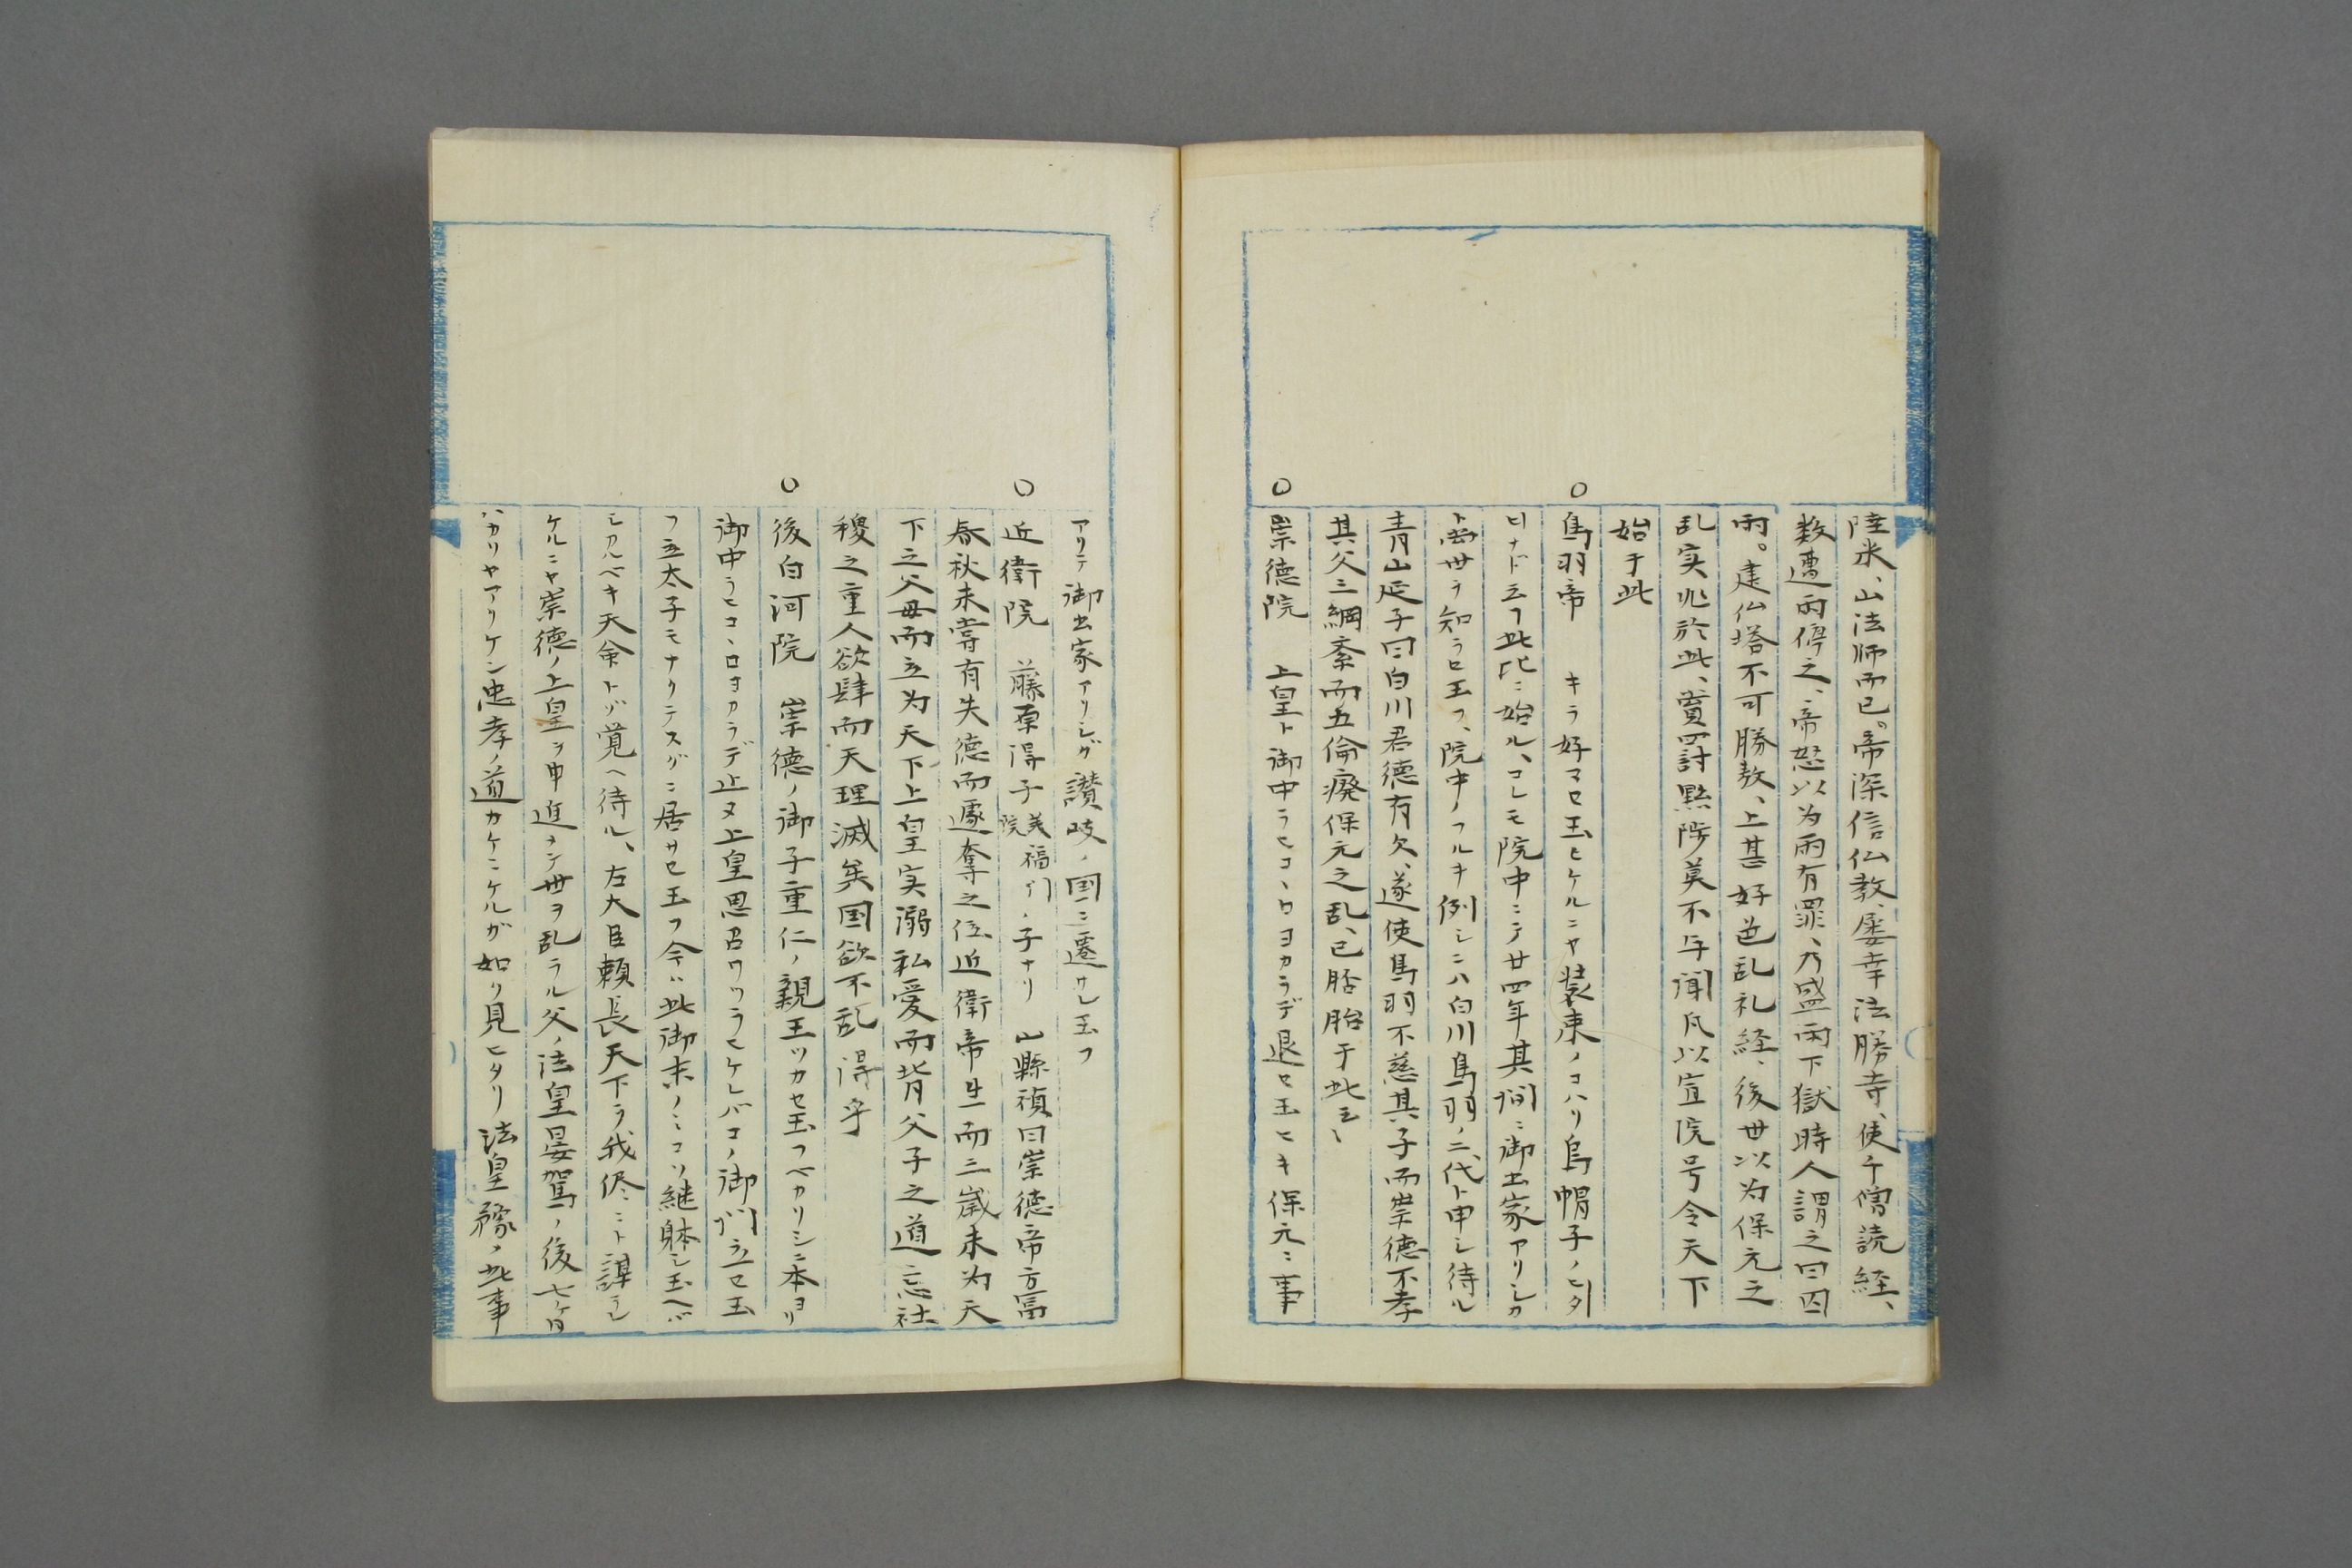 陸米、山法师而已。帝深信仏教、屡幸法勝寺、使千僧読経、
数遭雨停之、帝怒以为雨有罪、乃盛雨下獄時人謂之曰囚
雨。建仏塔不可勝数、上甚好色乱礼経、後世以为保元之
乱实兆於此、賞罰討黜陟莫不与聞凡以宣院号令天下
始于此
○鳥羽帝 キラ好マセ玉ヒケルニヤ装束ノコハリ烏帽子ノヒタ
ヒナド云フ此比ニ始ル、コレモ院中ニテ廿四年其间ニ御出家アリシカ
ト両世ヲ知ラセ玉フ、院中ノフルキ例シニハ白川鳥羽ノ二代ト申シ待ル
青山延于曰白川君德有欠、遂使鳥羽不慈其子而崇德不孝
其父三綱紊而五倫廃保元之乱、已胚胎于此云々
○崇徳院 上皇ト御中ラヒコヽロヨカラデ退セ玉ヒキ保元ニ事
アリテ御出家アリシガ讃岐ノ国ニ遷サレ玉フ
○近衛院 藤原得子美福门院ノ子ナリ 山縣禎曰崇徳帝方富
春秋未嘗有失德而遽奪之位近衛帝生而三歳未为天
下之父母而立为天下上皇实溺私爱而背父子之道忘社
稷之重人欲肆而天理滅矣国欲不乱得乎
○後白河院 崇徳ノ御子重仁ノ親王ツカセ玉フベカリシニ本ヨリ
御中ラヒコヽロヨカラデ止ヌ上皇思召ワツラヒケレバコノ御门ヲ立セ玉
フ立太子モナクテスグニ居サセ玉フ今ハ此御末ノミコソ継躰シ玉ヘバ
シカルベキ天命トゾ覚ヘ待ル、左大臣頼長天下ヲ我侭ニト謀ラレ
ケルニヤ崇徳ノ上皇ヲ申進メン世ヲ乱ラル父ノ法皇晏駕ノ後七ケ日
ハカリヤアリケン忠孝ノ道カケニケルガ如リ見ヒタリ法皇豫ノ此事